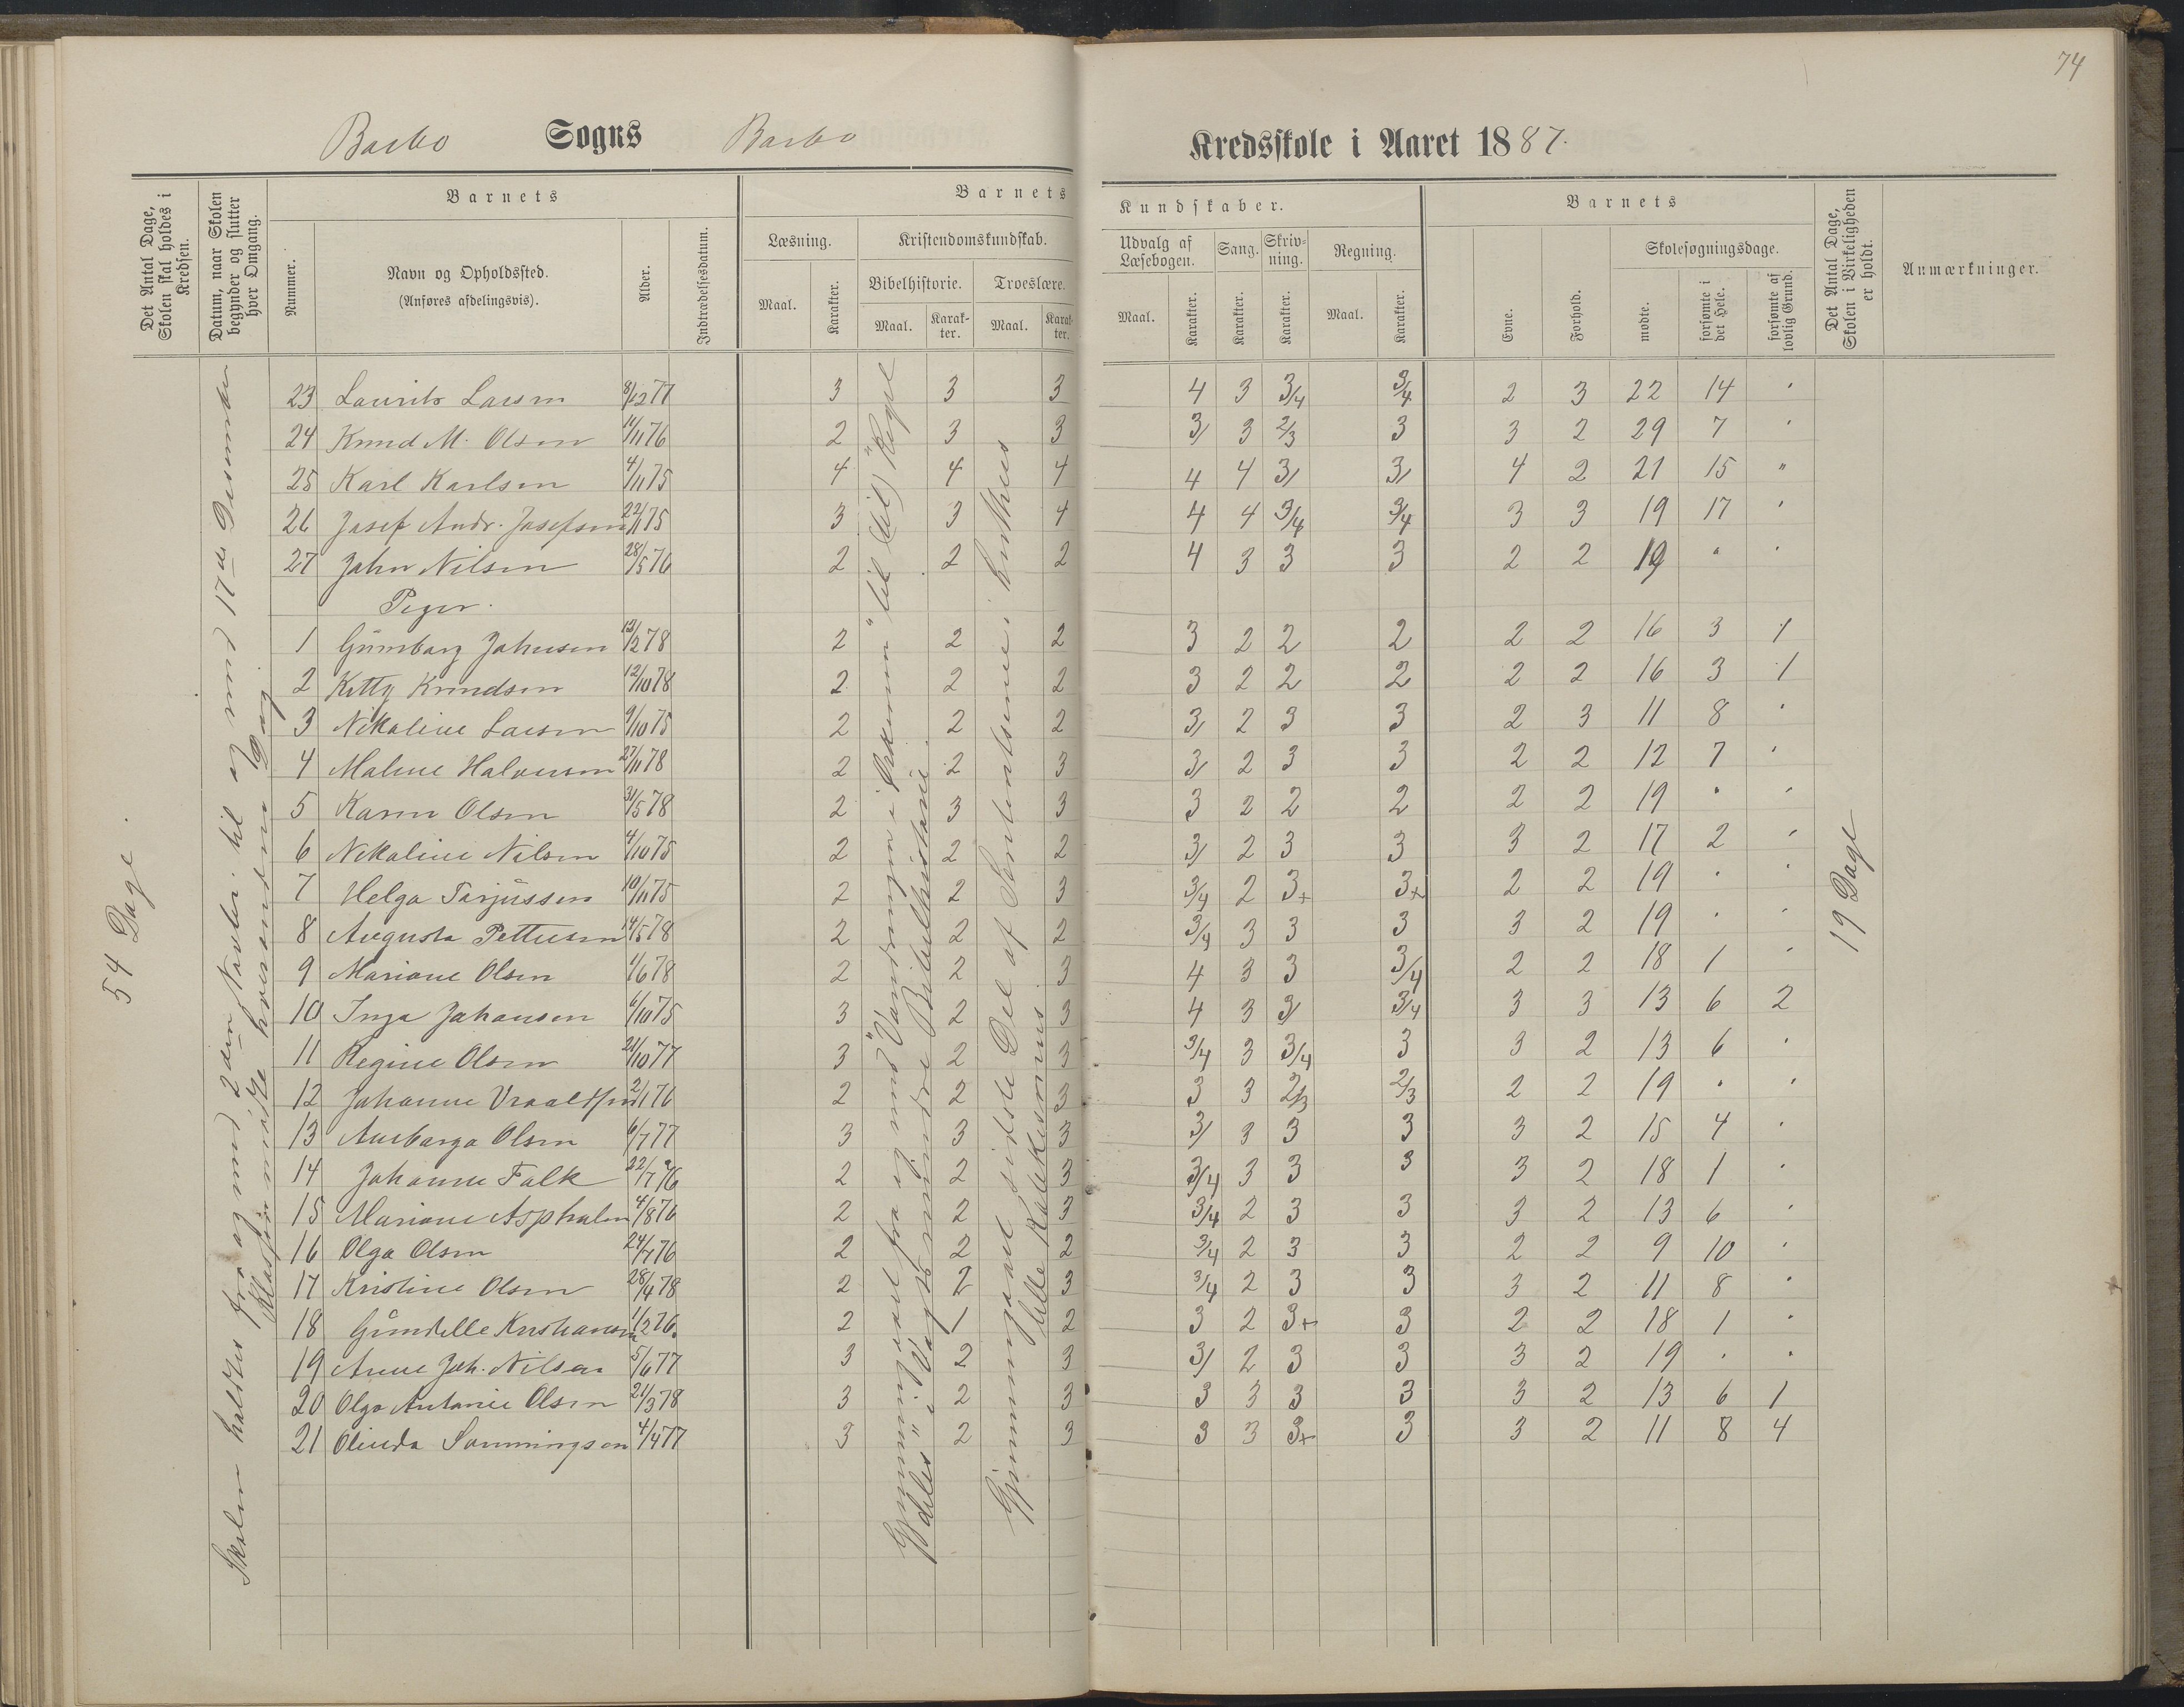 74
Barbo Sogns Barbo Kredsskole i Aaret 1887.
Det Antal Dage, Skolen skal holdes i Kredsen.
Datum, naar Skolen begynder og slutter hver Omgang.
Barnets
Nummer.
Navn og Opholdssted. (Anføres afdelingsvis).
Alder.
Indtrædelsesdatum.
Barnets Kundskaber.
Læsning.
Maal. Karakter.
Kristendomskundskab.
Bibelhistorie. Troeslære.
Maal. Karakter. Maal. Karakter.
Udvalg af Læsebogen. Sang. Skrivning. Regning.
Maal. Karakter. Karakter. Karakter. Maal. Karakter.
Barnets
Evne. Forhold.
Skolesøgningsdage.
mødte. forsømte i det Hele. forsømte af lovlig Grund.
Det Antal Dage, Skolen i Virkeligheden er holdt.
Anmærkninger.
54 Dage.
Skolen holdtes fra og med 2den Novbr. til og med 17de Desember
Klassen mødte hveranden Dag.
19 Dage
23 Laurits Larsen 8/12 77 3 3 3 4 3 3/4 3/4 2 3 22 14 "
24 Knud M. Olsen 14/11 76 2 3 3 3/ 3 2/3 3 3 2 29 7 "
25 Karl Karlsen 4/11 75 4 4 4 4 4 3/ 3/ 4 2 21 15 "
26 Josef Andr. Josefsen 22/11 75 3 3 4 4 4 3/4 3/4 3 3 19 17 "
27 John Nilsen 28/5 76 2 2 2 4 3 3 3 2 2 19 " "
Piger.
1 Gunborg Johnsen 13/2 78 2 2 2 3 2 2 2 2 2 16 3 1
2 Kitty Knudsen 12/10 78 2 2 2 3 2 2 2 2 2 16 3 1
3 Nikoline Larsen 9/10 75 2 2 2 3/ 2 3 3 2 3 11 8 "
4 Malene Halvorsen 27/11 78 2 2 3 3/ 2 3 3 2 2 12 7 "
5 Karen Olsen 31/5 78 2 3 3 3 2 2 2 2 2 19 " "
6 Nikoline Nilsen 4/10 75 2 2 2 3/ 2 3 3 3 2 17 2 "
7 Helga Terjussen 10/11 75 2 2 3 3/4 2 3+ 3+ 2 2 19 " "
8 Augusta Pettersen 14/5 78 2 2 2 3/4 3 3 3 3 2 19 " "
9 Mariane Olsen 1/6 78 2 2 3 4 3 3 3/4 2 2 18 1 "
10 Inga Johansen 6/10 75 3 2 3 4 3 3/ 3/4 3 3 13 6 2
11 Regine Olsen 21/10 77 3 2 3 3/4 3 3/4 3 3 2 13 6 "
12 Johanne Vraaldsen 2/1 76 2 2 3 3 3 2/3 2/3 2 2 19 " "
13 Aneborga Olsen 6/7 77 3 3 3 3/ 3 3 3 3 2 15 4 "
14 Johanne Falk 22/7 76 2 2 3 3/4 3 3 3 3 2 18 1 "
15 Mariane Asphalm 4/8 76 2 2 3 3/4 2 3 3 3 2 13 6 "
16 Olga Olsen 24/7 76 2 2 2 3/4 2 3 3 2 2 9 10 "
17 Kristine Olsen 28/4 78 2 2 3 3/4 2 3 3 3 2 11 8 "
18 Gundelle Kristiansen 1/2 76 2 1 2 3 2 3+ 3 2 2 18 1 "
19 Anne Joh. Nilsen 5/6 77 3 2 3 3/ 2 3 3 3 2 19 " "
20 Olga Antonie Olsen 21/3 78 3 2 3 3 3 3 3 3 2 13 6 1
21 Olinda Sønningsen 4/4 77 3 2 3 3 3 3+ 3 3 2 11 8 4
Gjennemgaaet fra og med "Vandringen i Ørkenen" til "Rigets
deles" i Vogts mindre Bibelhistorie.
Gjennemgaaet sidste Del af Sententserne i Luthers
lille Katekismus.